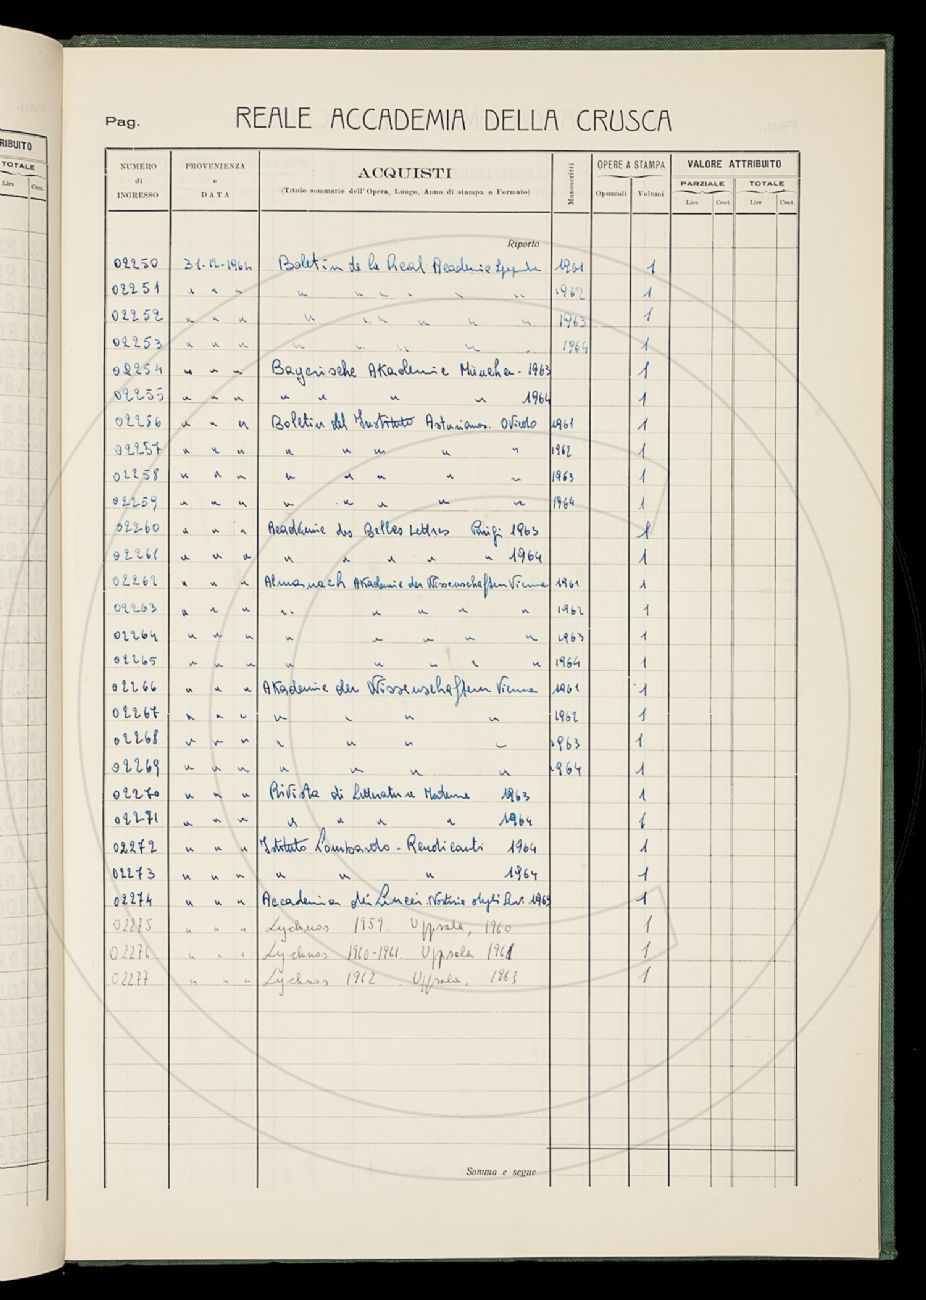 RIBUITO
TOTALE
Lire Cent.
Pag. REALE ACCADEMIA DELLA CRUSCA
NUMERO di INGRESSO PROVENIENZA e DATA ACQUISTI (Titolo sommario dell'Opera, Luogo, Anno di stampa e Formato) Manoscritti OPERE A STAMPA Opuscoli Volumi VALORE ATTRIBUITO PARZIALE Lire Cent. TOTALE Lire Cent.
Riporto
02250 31-12-1964 Boletin de la Real Academia 1961 1
02251 " " " " " " " " " 1962 1
02252 " " " " " " " " " 1963 1
02253 " " " " " " " " 1964 1
02254 " " " Bayerische Akademie München - 1963 1
02255 " " " " " " " 1964 1
02256 " " " Boletin del Instituto Asturianos. Oviedo 1961 1
02257 " " " " " " " " 1962 1
02258 " " " " " " " " 1963 1
02259 " " " " " " " " 1964 1
02260 " " " Académie des Belles Lettres Parigi 1963 1
02261 " " " " " " " " 1964 1
02262 " " " Almanach Akademie der Wissenschaften Vienna 1961 1
02263 " " " " " " " " 1962 1
02264 " " " " " " " " 1963 1
02265 " " " " " " " " 1964 1
02266 " " " Akademie der Wissenschaften Vienna 1961 1
02267 " " " " " " " 1962 1
02268 " " " " " " " 1963 1
02269 " " " " " " " 1964 1
02270 " " " Rivista di Letterature Moderne 1963 1
02271 " " " " " " " 1964 1
02272 " " " Istituto Lombardo - Rendiconti 1964 1
02273 " " " " " " 1964 1
02274 " " " Accademia dei Lincei. Notizie degli Scavi 1963 1
02275 " " " Lychnos 1959. Uppsala, 1960 1
02276 " " " Lychnos 1960-1961. Uppsala 1961 1
02277 " " " Lychnos 1962. Uppsala, 1963 1
Somma e segue